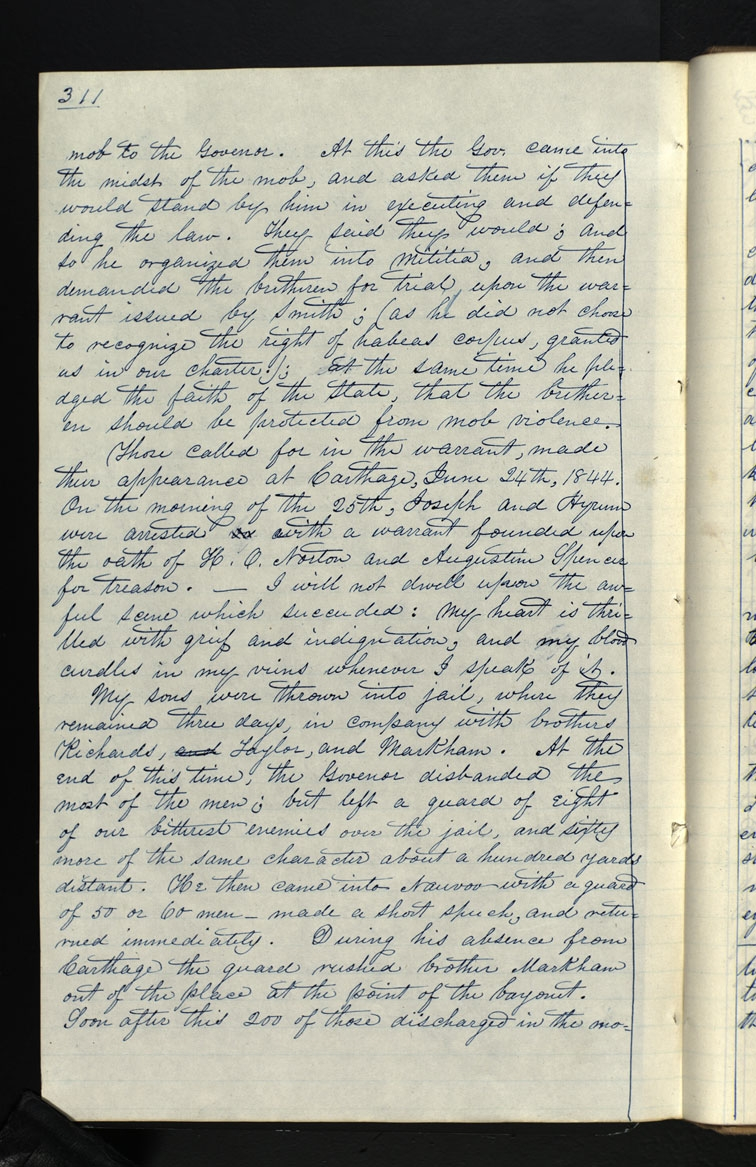 311
mob to the Govenor. At this the Gov. came into
the midst of the mob, and asked them if they
would stand by him in executing and defen=
ding the law. They said they would; and
so he organized them into militia; and then
demanded the brethren for trial, upon the war=
rant issued by Smith; (as he did not choose
to recognize the right of habeas corpus, granted
us in our charter:); at the same time he ple=
dged the faith of the State, that the brether=
en should be protected from mob violence.
Those called for in the warrant, made
their appearance at Carthage, June 24th, 1844.
On the morning of the 25th, Joseph and Hyrum
were arrested with a warrant founded upon
the oath of H. O. Norton and Augustin Spencer
for treason. — I will not dwell upon the aw=
ful scene which succeeded: My heart is thri=
lled with grief and indignation, and my blood
curdles in my viens whenever I speak of it.
My sons were thrown into jail, where they
remained three days, in company with brothers
Richards, and Taylor, and Markham. At the
end of this time, the Govenor disbanded the
most of the men; but left a guard of eight
of our bitterest enemies over the jail, and sixty
more of the same character about a hundred yards
distant. He then came into Nauvoo with a guard
of 50 or 60 men — made a short speech, and retu=
rned immediately. During his absence from
Carthage the guard rushed brother Markham
out of the place at the point of the bayonet.
Soon after this 200 of those discharged in the mo=